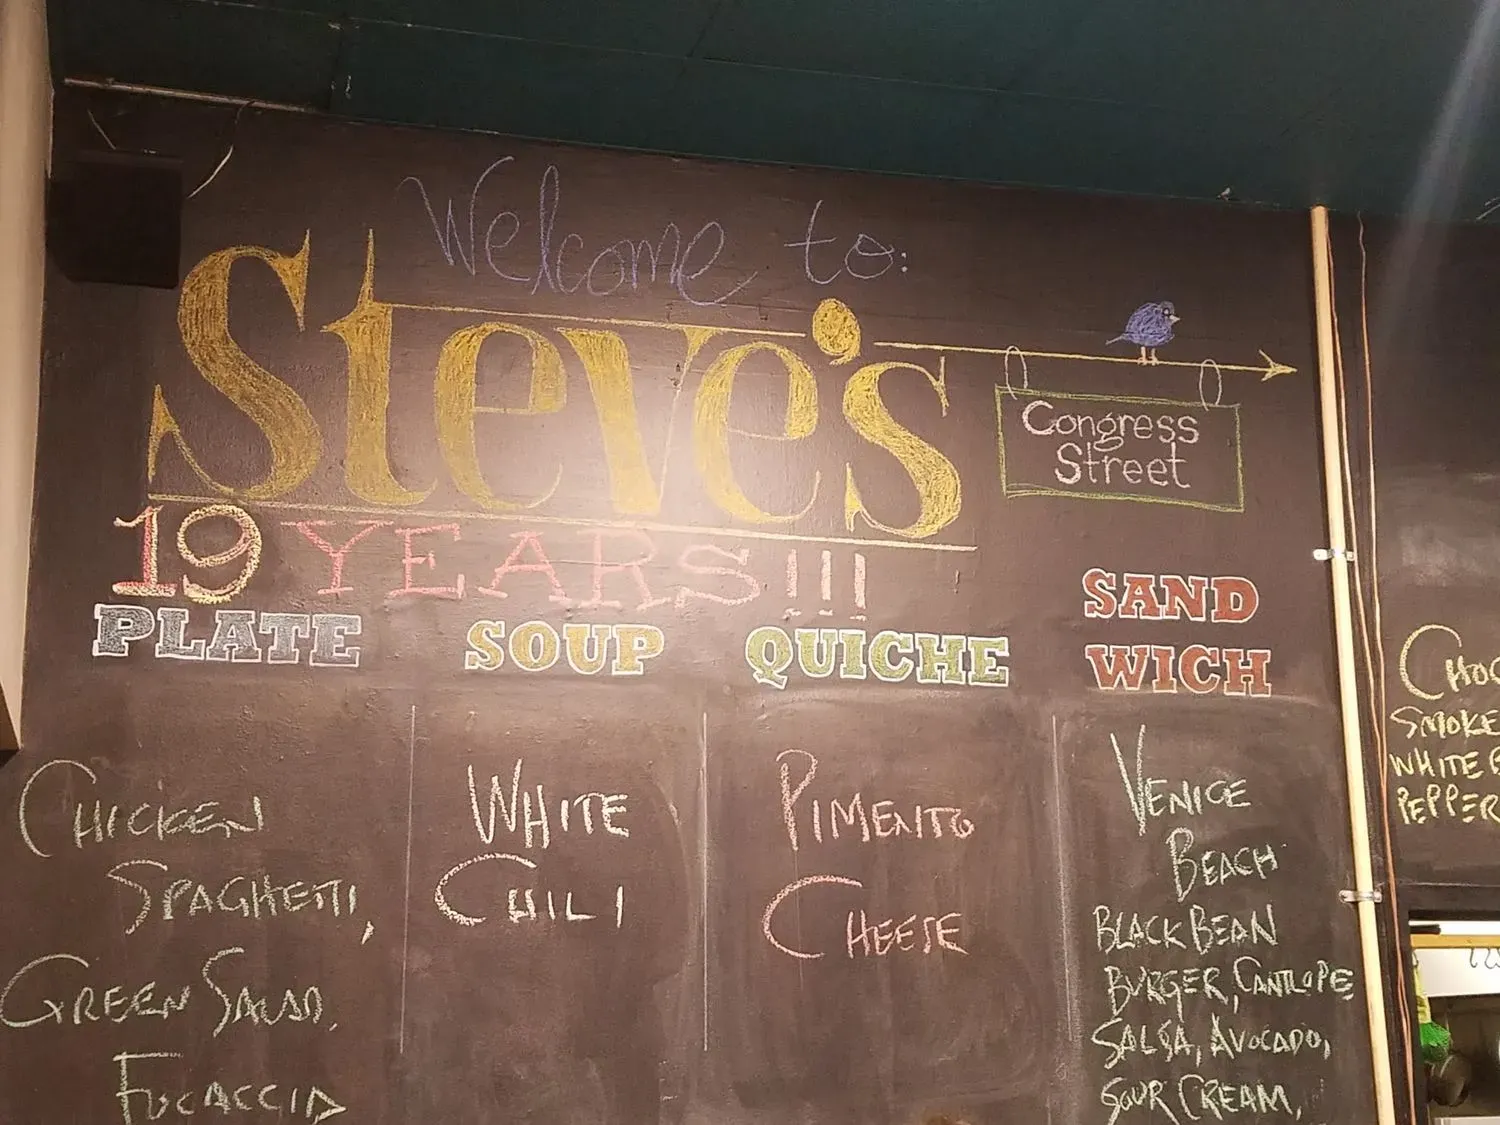 Welcome to:
Steve's
Congress
Street
19 YEARS!!!
PLATE
CHICKEN
SPAGHETTI,
GREEN SALAD,
FOCACCIA
SOUP
WHITE
CHILI
QUICHE
PIMENTO
CHEESE
SAND
WICH
VENICE
BEACH
BLACK BEAN
BURGER, CANTLOPE
SALSA, AVOCADO,
SOUR CREAM,
SMOKE
WHITE
PEPPER